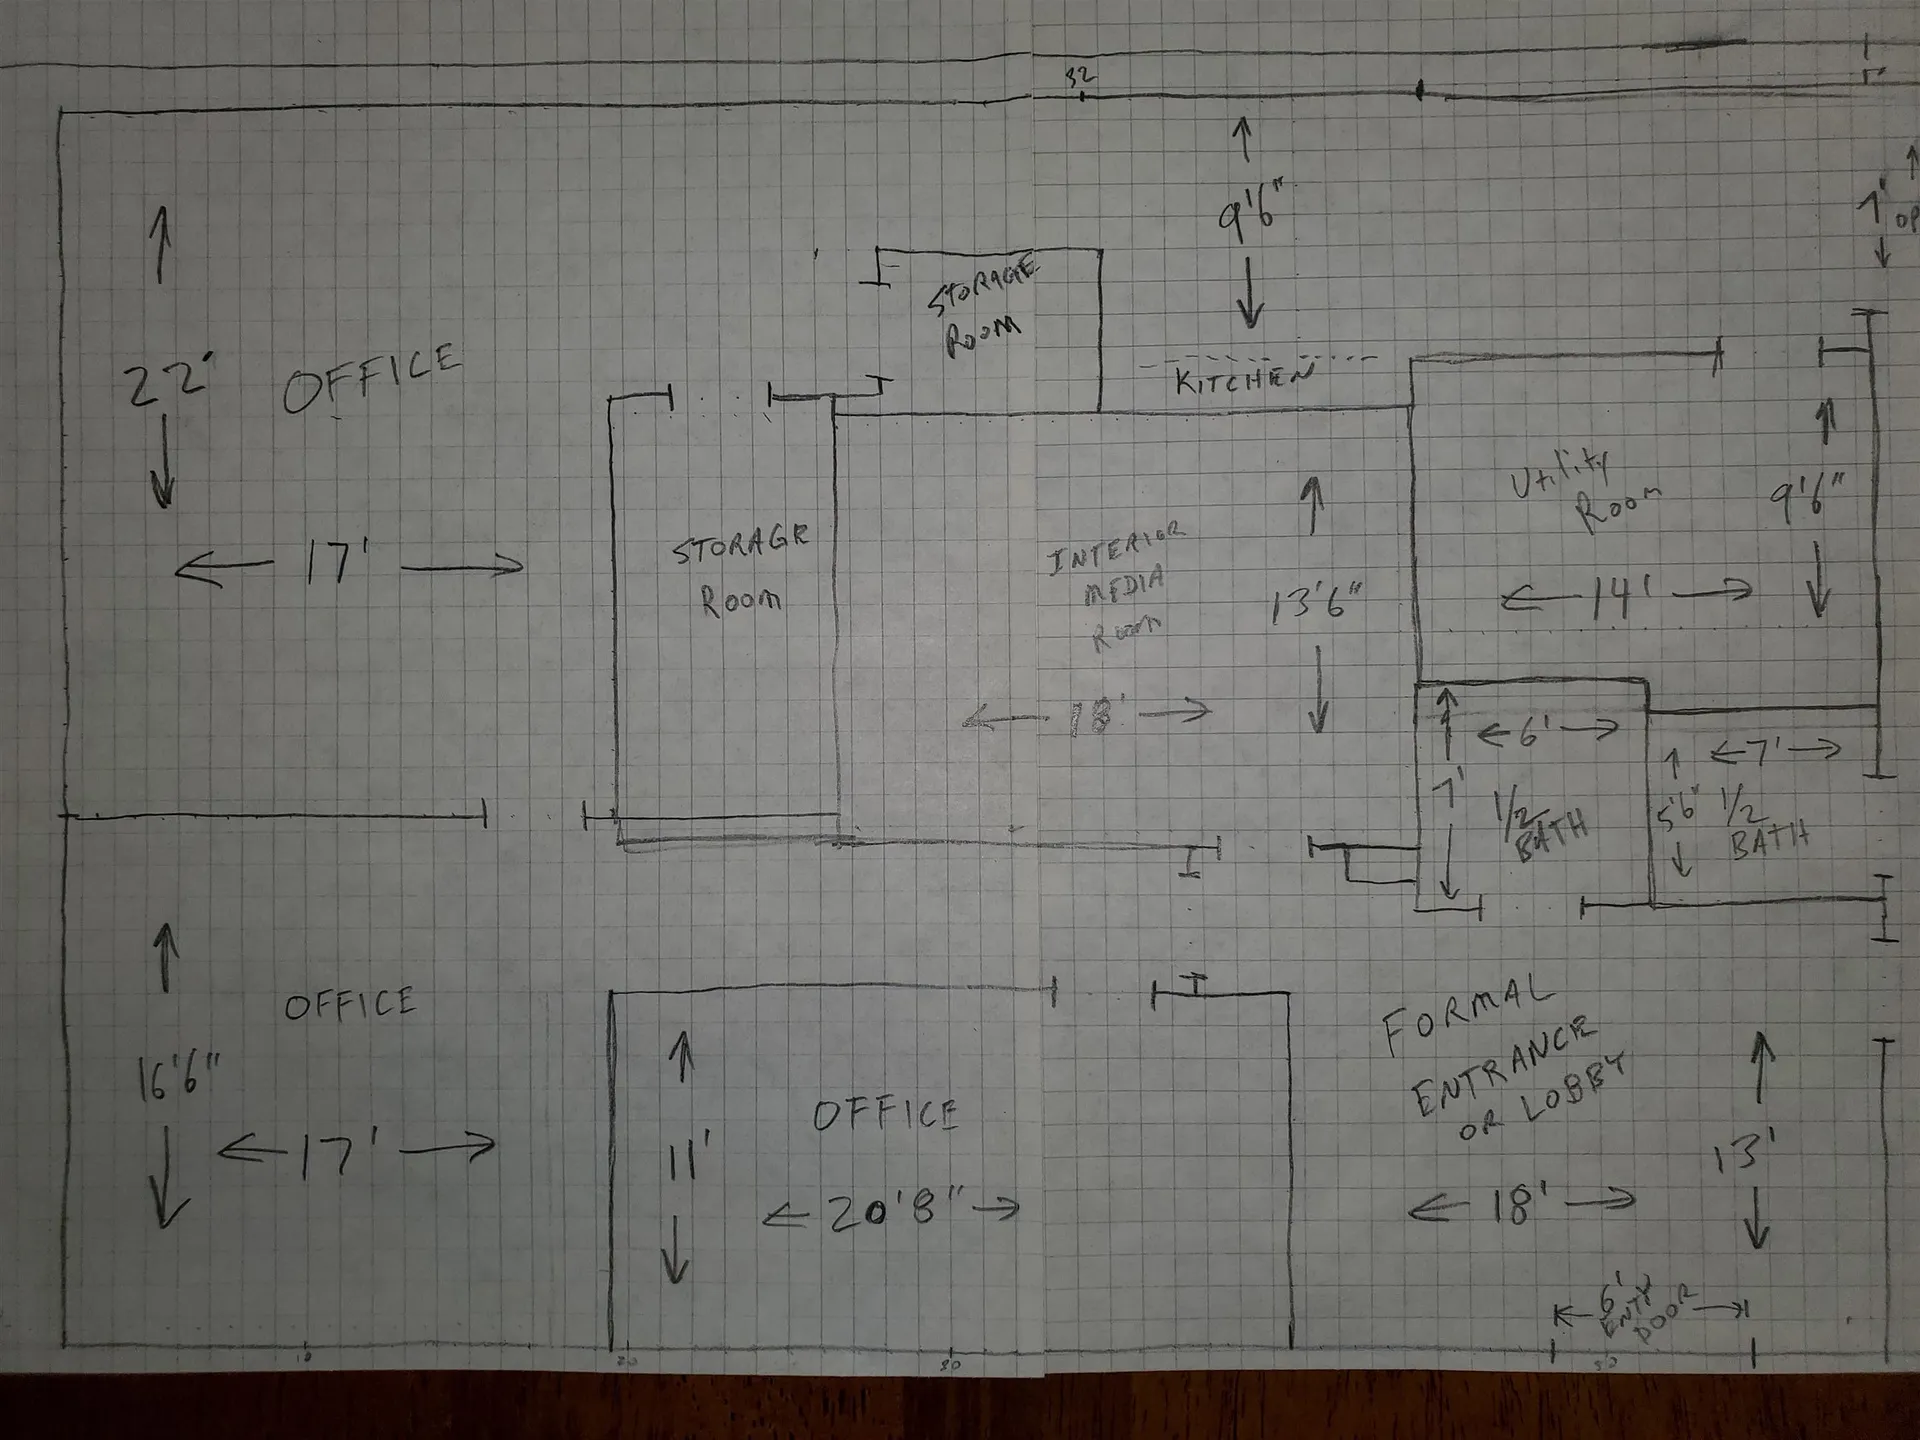 32
9'6"
STORAGE
ROOM
22'
OFFICE
KITCHEN
17'
STORAGE
ROOM
INTERIOR
MEDIA
ROOM
13'6"
18'
Utility
Room
9'6"
14'
6'
7'
1/2
BATH
7'
5'6"
1/2
BATH
OFFICE
16'6"
17'
11'
OFFICE
20'8"
FORMAL
ENTRANCE
OR LOBBY
13'
18'
6'
ENTY
DOOR
20
30